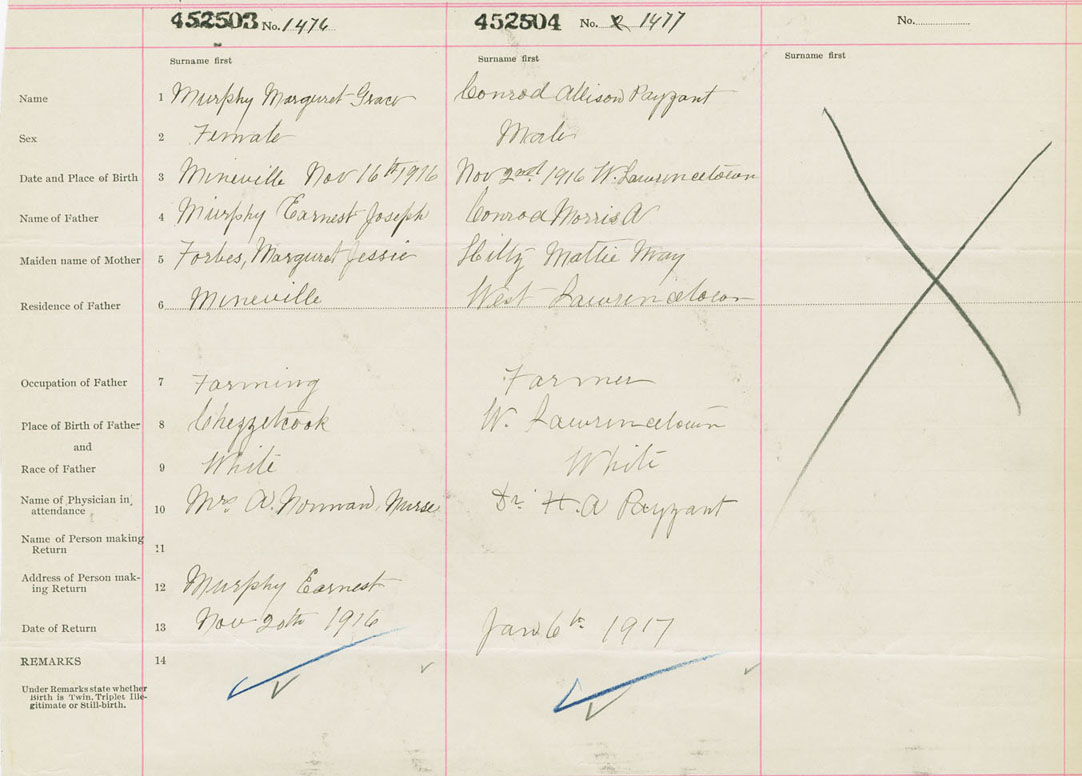 452503 No. 1476 452504 No. 1477 No.
Surname first Surname first Surname first
Name 1 Murphy Margaret Grace Conrad Allison Payzant
Sex 2 Female Male
Date and Place of Birth 3 Mineville Nov 16th 1916 Nov 2nd 1916 W. Lawrencetown
Name of Father 4 Murphy Earnest Joseph Conrod Morris A
Maiden name of Mother 5 Forbes, Margaret Jessie Hiltz Mattie May
Residence of Father 6 Mineville West Lawrencetown
Occupation of Father 7 Farming Farmer
Place of Birth of Father 8 Chezzetcook W. Lawrencetown
and
Race of Father 9 White White
Name of Physician in attendance 10 Mrs A. Norman, Nurse Dr. H. A Payzant
Name of Person making Return 11
Address of Person making Return 12 Murphy Earnest
Date of Return 13 Nov 20th 1916 Jan 6th 1917
REMARKS 14
Under Remarks state whether
Birth is Twin, Triplet Ille-
gitimate or Still-birth.